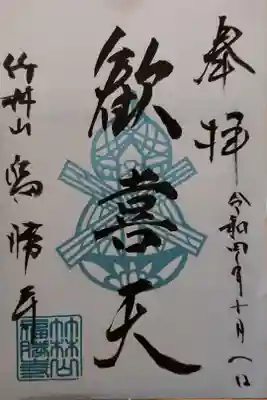 奉拝
令和四年十月八日
歓喜天
竹林山 福勝寺
竹林山
福勝寺